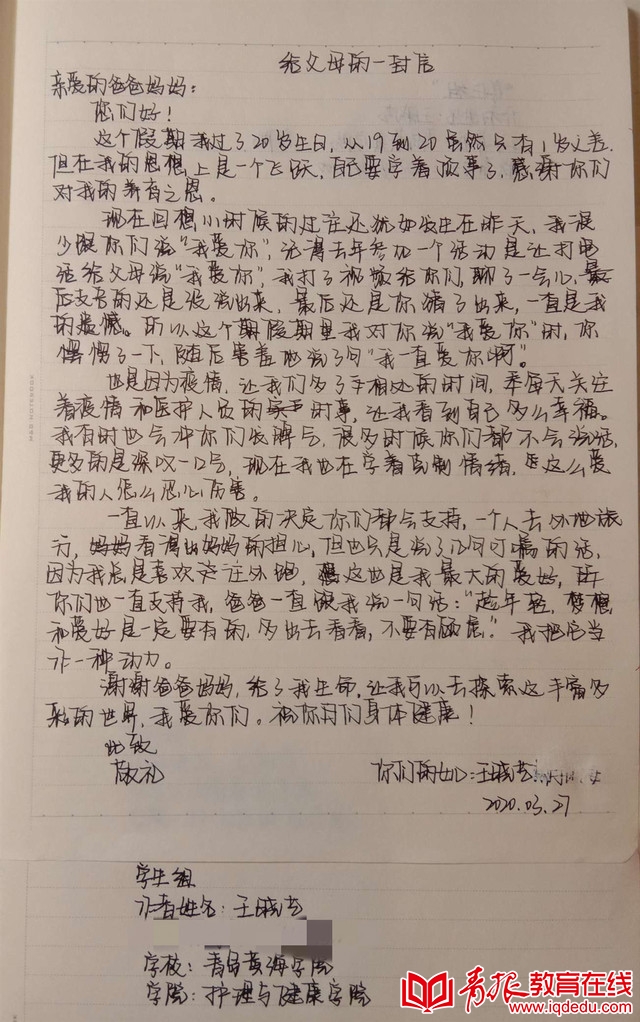 给父母的一封信
亲爱的爸爸妈妈：
您们好！
这个假期我过了20岁生日，从19到20虽然只有1岁之差.
但在我的思想上是一个飞跃，自己要学着懂事了，感谢你们
对我的养育之恩。
现在回想小时候的过往还犹如发生在昨天，我很
少跟你们说"我爱你"，记得去年参加一个活动是让打电
话给父母说"我爱你"，我打了视频给你们，聊了一会儿，最
后支吾的还是没说出来，最后还是你猜了出来，一直是我
的遗憾。所以这个假期里我对你说"我爱你"时，你
愣了一下，随后害羞地说了句"我一直爱你啊"。
也是因为疫情，让我们多了手相处的时间，每天关注
着疫情和医护人员的时事，让我看到自己多么幸福。
我有时也会冲你们发脾气，很多时候你们都不会说话，
更多的是深叹一口气，现在我也在学着克制情绪，这么爱
我的人怎么忍心伤害。
一直以来，我做的决定你们都会支持，一个人去外地旅
行，看得出妈妈的担心，但也只是说了几句叮嘱的话，
因为我总是喜欢往外跑，这也是我最大的爱好，
你们也一直支持我，爸爸一直跟我说一句话："趁年轻，梦想
和爱好是一定要有的，多出去看看，不要有顾虑。"我把它当
作一种动力。
谢谢爸爸妈妈，给了我生命，让我可以去探索这丰富多
彩的世界，我爱你们。祝你们身体健康！
此致
敬礼
你们的女儿：王晓艺
2020.03.27
学生组
作者姓名：王晓艺
学校：青岛黄海学院
学院：护理与健康学院
青报教育在线
www.iqdedu.com